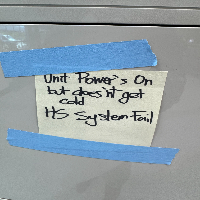 Unit Power's On
but does'nt get
cold
HS System Fail